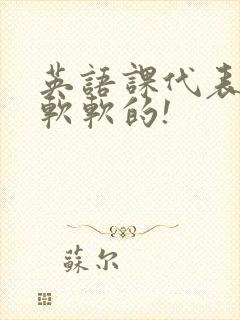 英語課代表
軟軟的!
蘇尔